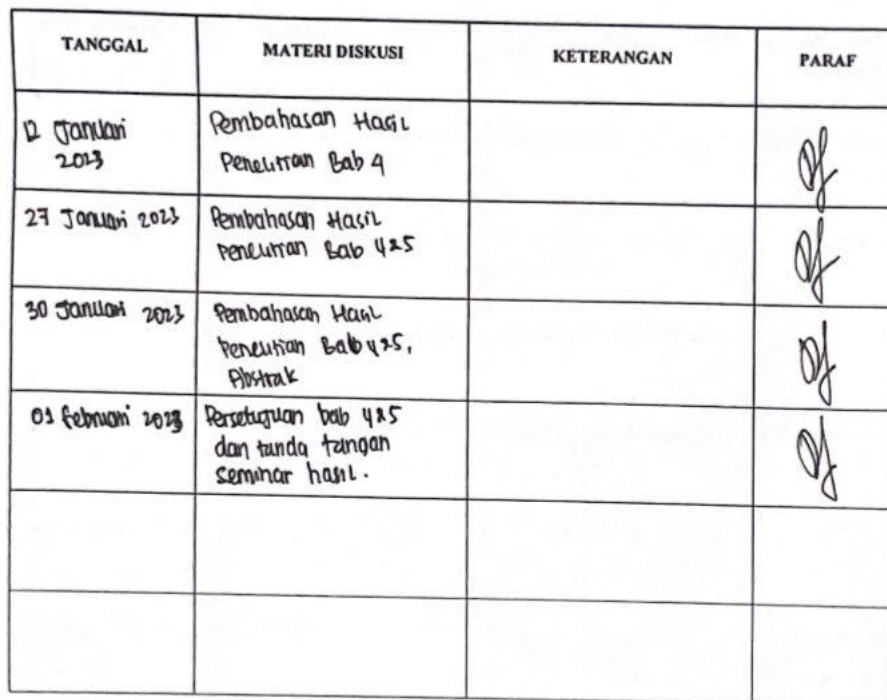 TANGGAL MATERI DISKUSI KETERANGAN PARAF
12 Januari Pembahasan Hasil
2023 Penelitian Bab 4
27 Januari 2023 Pembahasan Hasil
Penelitian Bab 4&5
30 Januari 2023 Pembahasan Hasil
Penelitian Bab 4&5,
Abstrak
01 Februari 2023 Persetujuan bab 4&5
dan tanda tangan
seminar hasil.